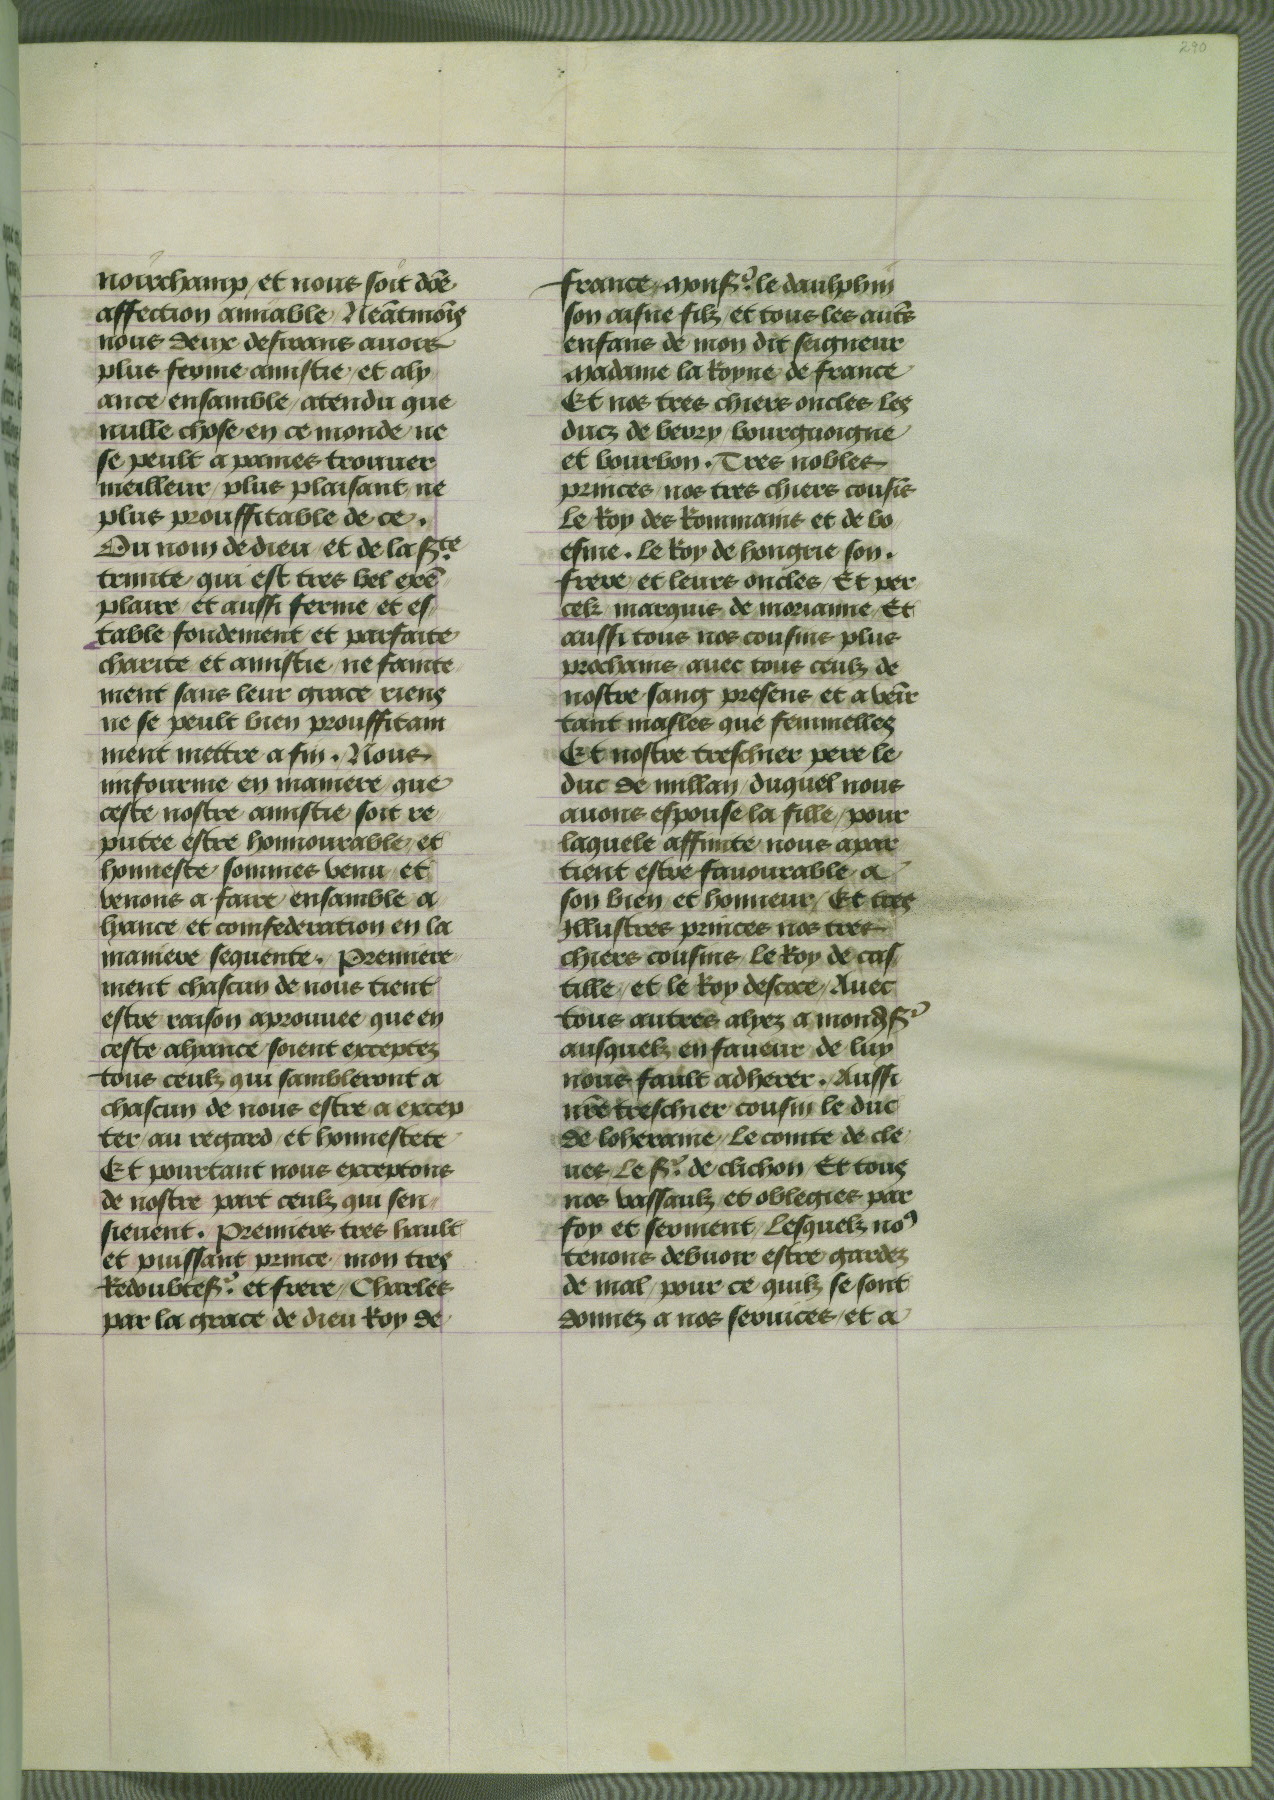 290
nourchamp / et nous soit dōe
affection amiable / Neātmoīs
nous deux desirans auoir
plus ferme amistie / et aly
ance / ensamble / atendu que
nulle chose en ce monde ne
se peult a paines trouuer
meilleur / plus plaisant / ne
plus prouffitable de ce .
Ou nom de dieu / et de la Ste
trinite / qui est tres bel exē
plaire / et aussi ferme et es
table fondement et parfaite
charite et amistie / ne fainte
ment sans leur grace riens
ne se peult bien prouffitam
ment mettre a fin . Nous
imfourme en maniere / que
ceste nostre amistie soit re
putee estre honnourable / et
honneste / sommes venu / et
venons a faire / ensamble a
liance et comfederation en la
maniere sequente . Premiere
ment chascun de nous tient
estre raison aprouuee que en
ceste alyance / soient exceptez
tous ceulz qui sambleront a
chascun de nous estre a excep
ter / au regard / et honnestete
Et pourtant nous exceptons
de nostre part ceulz qui sen
sieuent . Premiers tres hault
et puissant prince / mon tres
Redoubte Sr . et frere / Charles
par la grace de dieu Roy de
france / Monsr . le daulphin
son aisne filz / et tous les aut̄s
enfans de mon dit seigneur
Madame la Royne de france
Et nos tres chiers oncles les
ducz de berry / bourguoigne
et bourbon . Tres nobles
princes / nos tres chiers cousīs
Le Roy des Rommains et de bo
esme . Le Roy de hongrie son .
frere / et leurs oncles / Et per
celz marquis de morianne / Et
aussi tous nos cousins plus
prochains / auec tous ceulz de
nostre sang presens / et a veīr
tant masles que femmelles
Et nostre treschier pere le
duc de millan / duquel nous
auons espouse la fille / pour
laquele affinite / nous apar
tient estre fauourable a
son bien et honneur / Et tres
jllustres princes nos tres
chiers cousins / Le Roy de cas
tille / et le Roy descoce / Auec
tous autres alyez a mondSr
ausquelz en faueur de luy
nous fault adherer . Aussi
nr̄e treschier cousin le duc
de loheraine / Le comte de cle
ues / Le Sr . de clichon / Et tous
nos vassaulz et oblegies par
foy et serment / Lesquelz noꝰ
tenons debuoir estre gardez
de mal / pour ce quilz se sont
donnez a nos seruices / et a